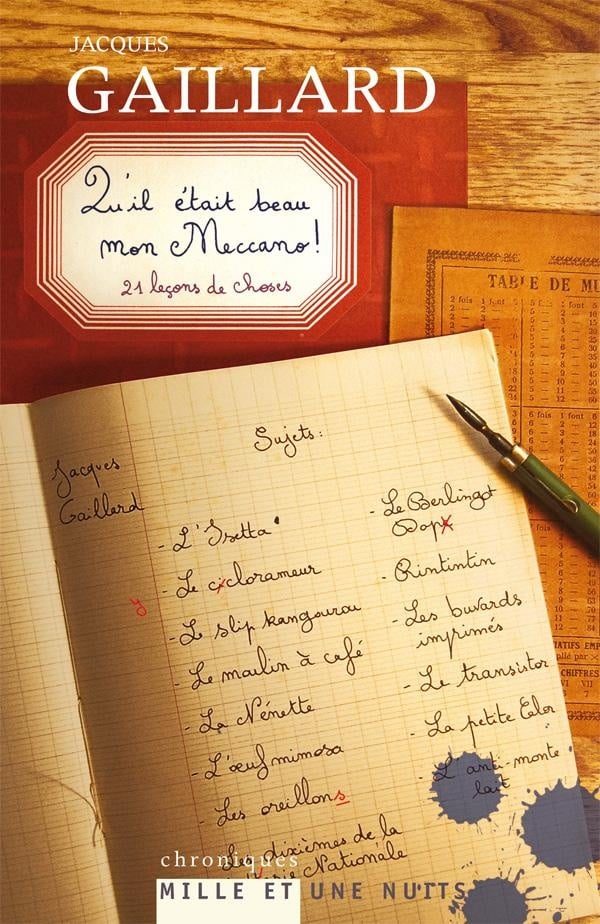 JACQUES
GAILLARD
Qu'il était beau
mon Meccano!
21 leçons de choses
TABLE DE MU
2 fois 1 font
5 fois 1 font 5
6 fois 1 font
CHIFFRES
VI VII
Sujets:
Jacques
Gaillard
- L'Isetta
- Le ciclorameur
y
- Le slip kangourou
- Le moulin à café
- La Nénette
- L'œuf mimosa
- Les oreillons
- Les dixièmes de la
Nationale
- Le Berlingot
Dopx
- Rintintin
- Les buvards
imprimés
- Le transistor
- La petite Calor
- L'anti-monte
lait
chroniques
MILLE ET UNE NUITS